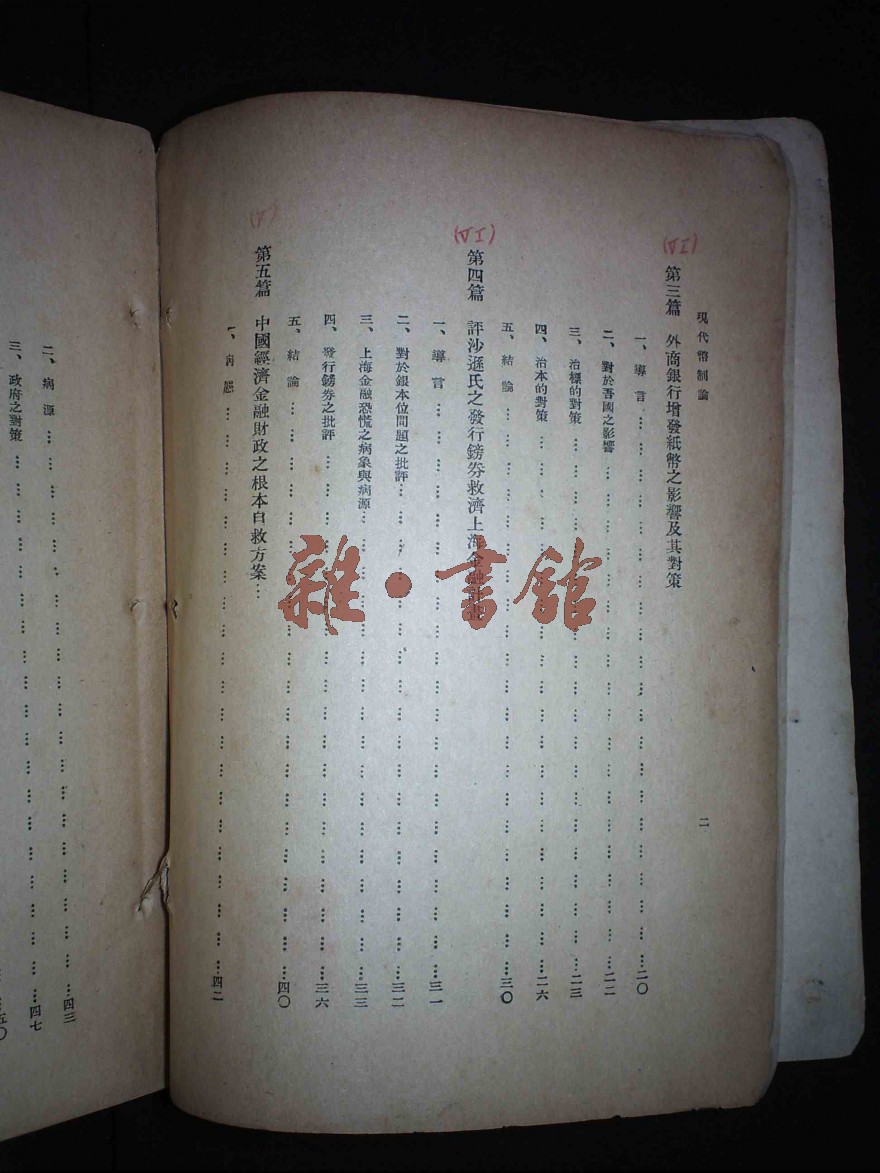 現代幣制論
二
(VI)
第三篇 外商銀行增發紙幣之影響及其對策
一、導言……二〇
二、對於吾國之影響……二二
三、治標的對策……二三
四、治本的對策……二六
五、結論……三〇
(VI)
第四篇 評沙遜氏之發行鎊券救濟上海金融計劃
一、導言……三一
二、對於銀本位問題之批評……三二
三、上海金融恐慌之病象與病源……三三
四、發行鎊券之批評……三六
五、結論……四〇
(V)
第五篇 中國經濟金融財政之根本自救方案…
一、病態……四二
二、病源……四三
三、政府之對策……四七
五〇
雜·書館